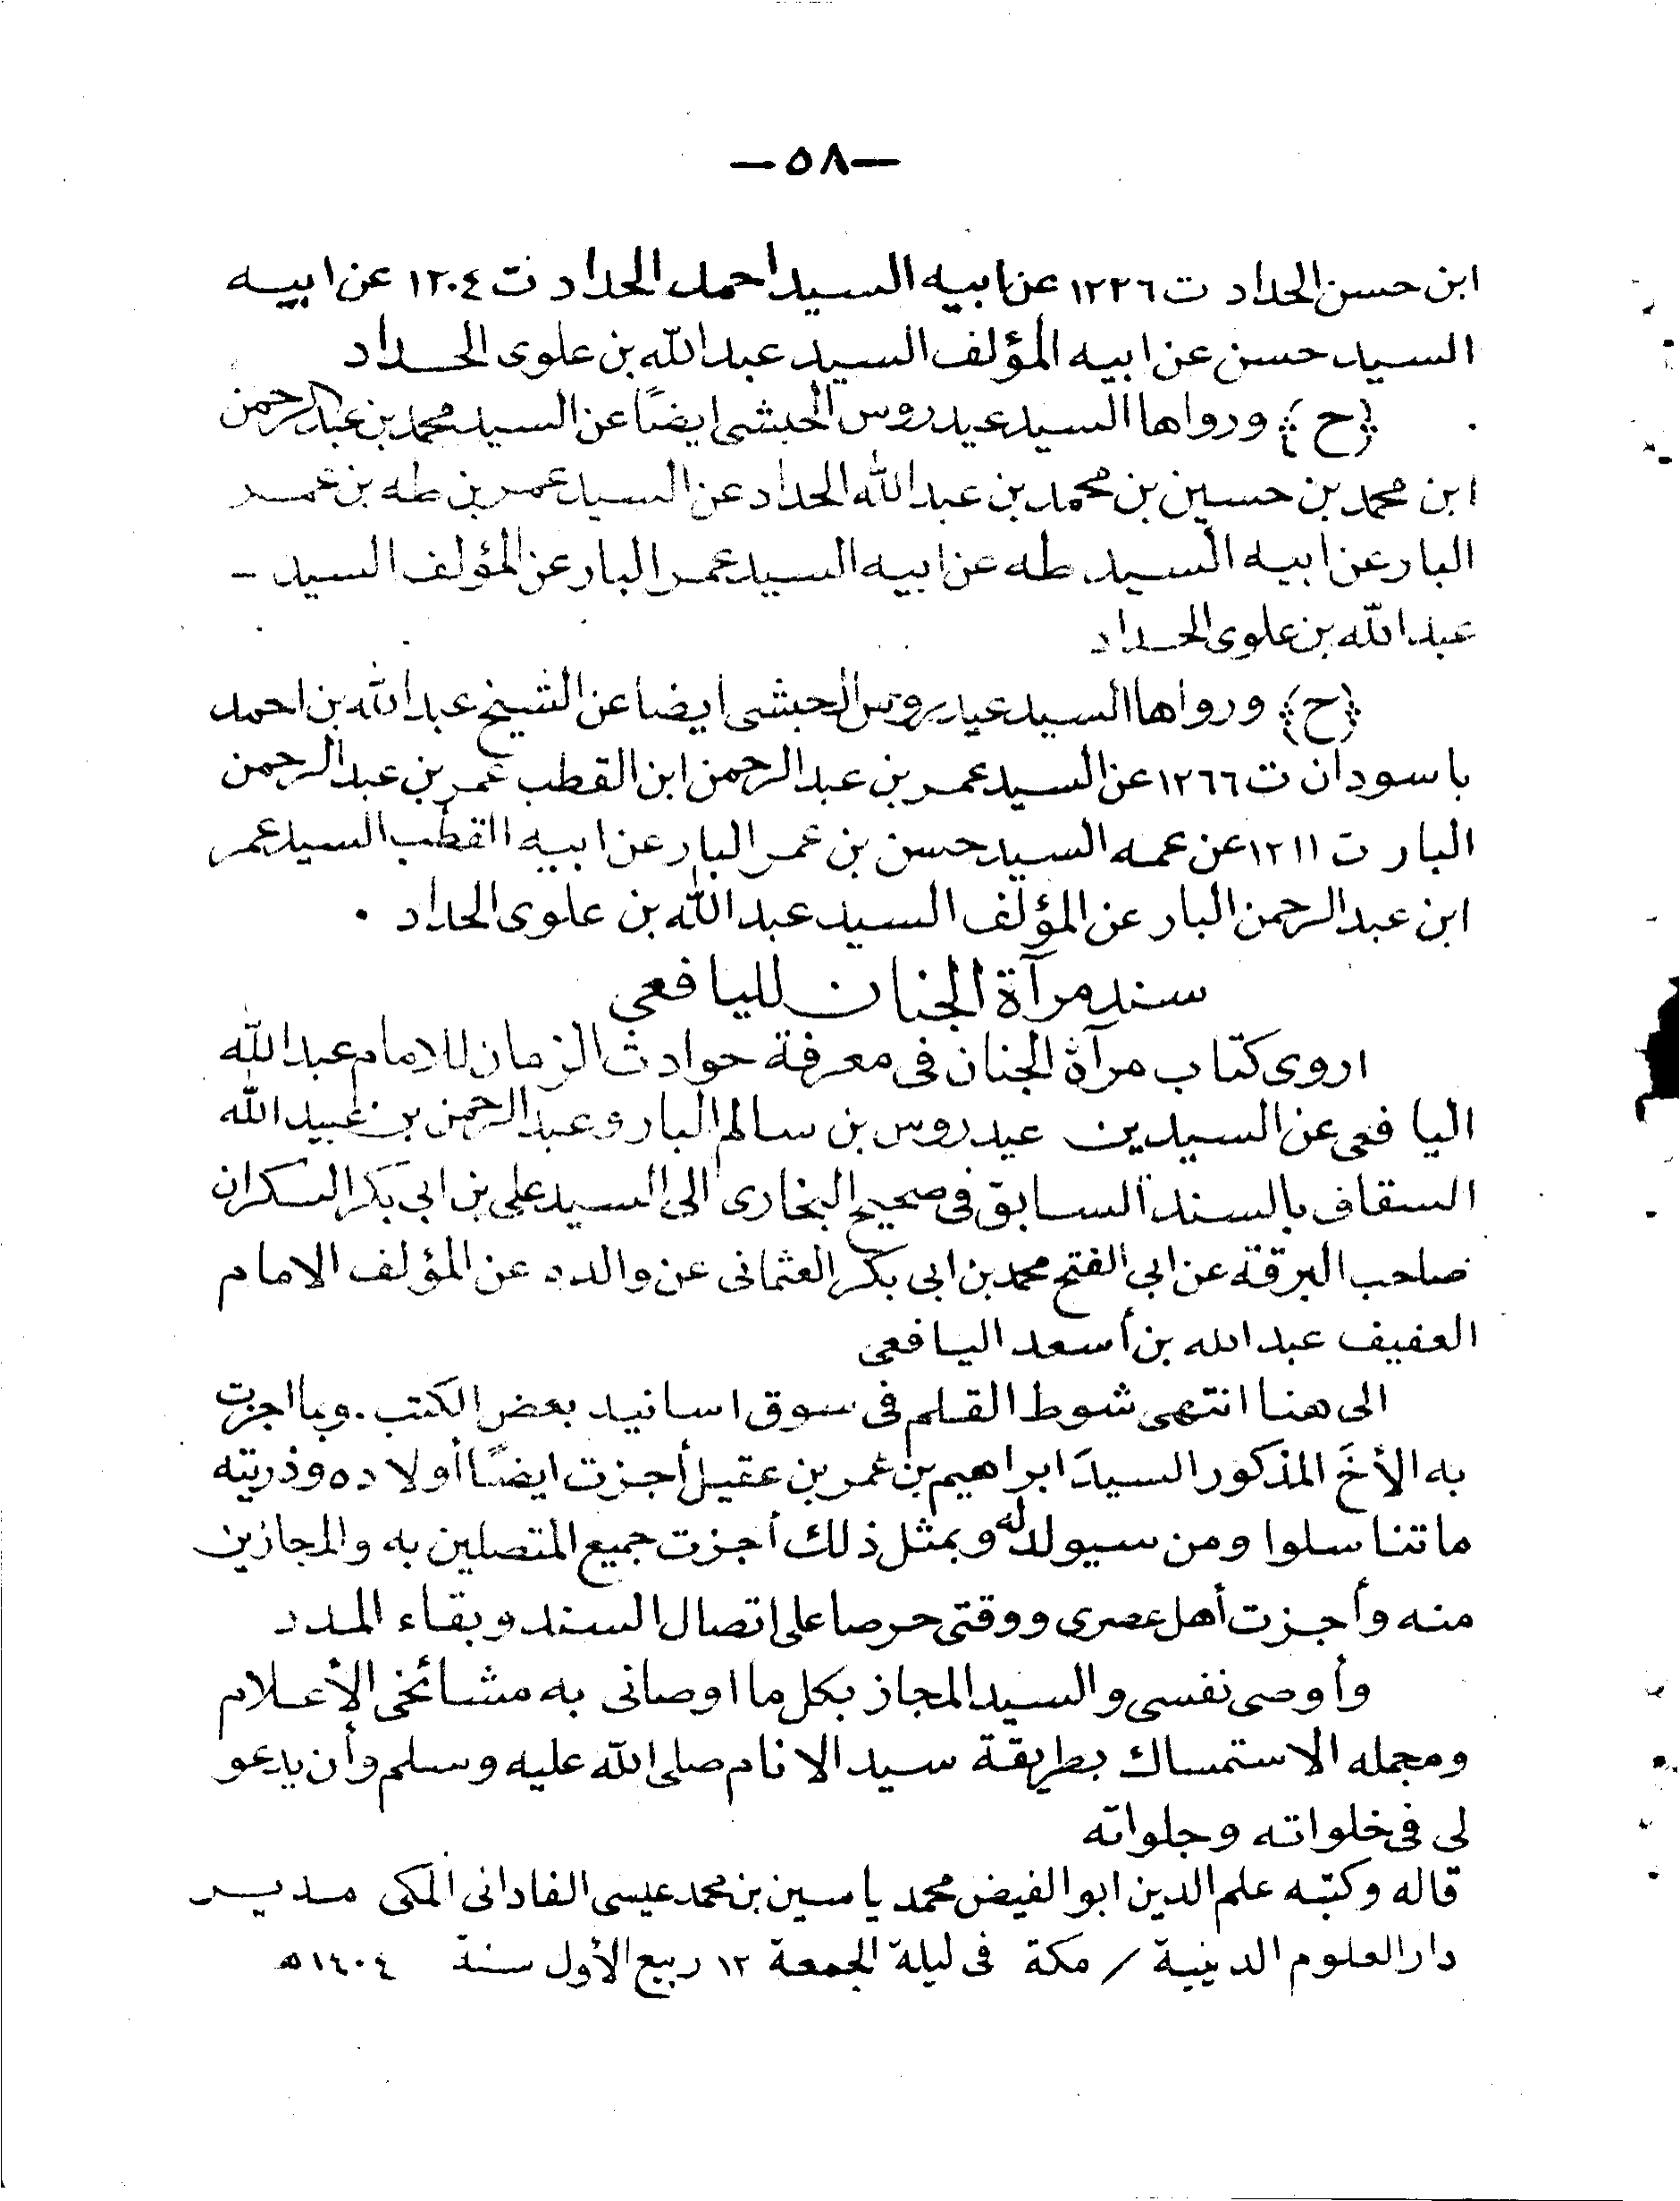 —٥٨—
ابن حسن الحداد ت ١٢٣٦ عن ابيه السيد احمد الحداد ت ١٢٠٤ عن ابيه
السيد حسن عن ابيه المؤلف السيد عبد الله بن علوى الحداد
{ح} ورواها السيد عيدروس الحبشى ايضًا عن السيد محمد بن عبد الرحمن
ابن محمد بن حسين بن محمد بن عبد الله الحداد عن السيد عمر بن طه بن عمر
البار عن ابيه السيد طه عن ابيه السيد عمر البار عن المؤلف السيد –
عبد الله بن علوى الحداد
{ح} ورواها السيد عيدروس الحبشى ايضا عن الشيخ عبد الله بن احمد
باسودان ت ١٢٦٦ عن السيد عمر بن عبد الرحمن ابن القطب عمر بن عبد الرحمن
البار ت ١٢١١ عن عمه السيد حسن بن عمر البار عن ابيه القطب السيد عمر
ابن عبد الرحمن البار عن المؤلف السيد عبد الله بن علوى الحداد .
سند مرآة الجنان لليافعي
اروى كتاب مرآة الجنان فى معرفة حوادث الزمان للامام عبد الله
اليافعى عن السيدين عيدروس بن سالم البار وعبد الرحمن بن عبيد الله
السقاف بالسند السابق فى صحيح البخارى الى السيد على بن ابي بكر السكران
صاحب البرقة عن ابى الفتح محمد بن ابى بكر العثمانى عن والده عن المؤلف الامام
العفيف عبد الله بن أسعد اليافعى
الى هنا انتهى شوط القلم فى سوق اسانيد بعض الكتب . وبما اجزت
به الأخَ المذكور السيدَ ابراهيم بن عمر بن عقيل أجزت ايضًا أولاده وذريته
ما تناسلوا ومن سيولد له وبمثل ذلك أجزت جميع المتصلين به والمجازين
منه وأجزت أهل عصرى ووقتى حرصا على اتصال السند وبقاء المدد
وأوصى نفسى والسيد المجاز بكل ما اوصانى به مشائخى الأعلام
ومجمله الاستمساك بطريقة سيد الانام صلى الله عليه وسلم وأن يدعو
لى فى خلواته وجلواته
قاله وكتبه علم الدين ابو الفيض محمد ياسين بن محمد عيسى الفادانى المكى مدير
دار العلوم الدينية / مكة فى ليلة الجمعة ١٢ ربيع الأول سنة ١٤٠٤ه